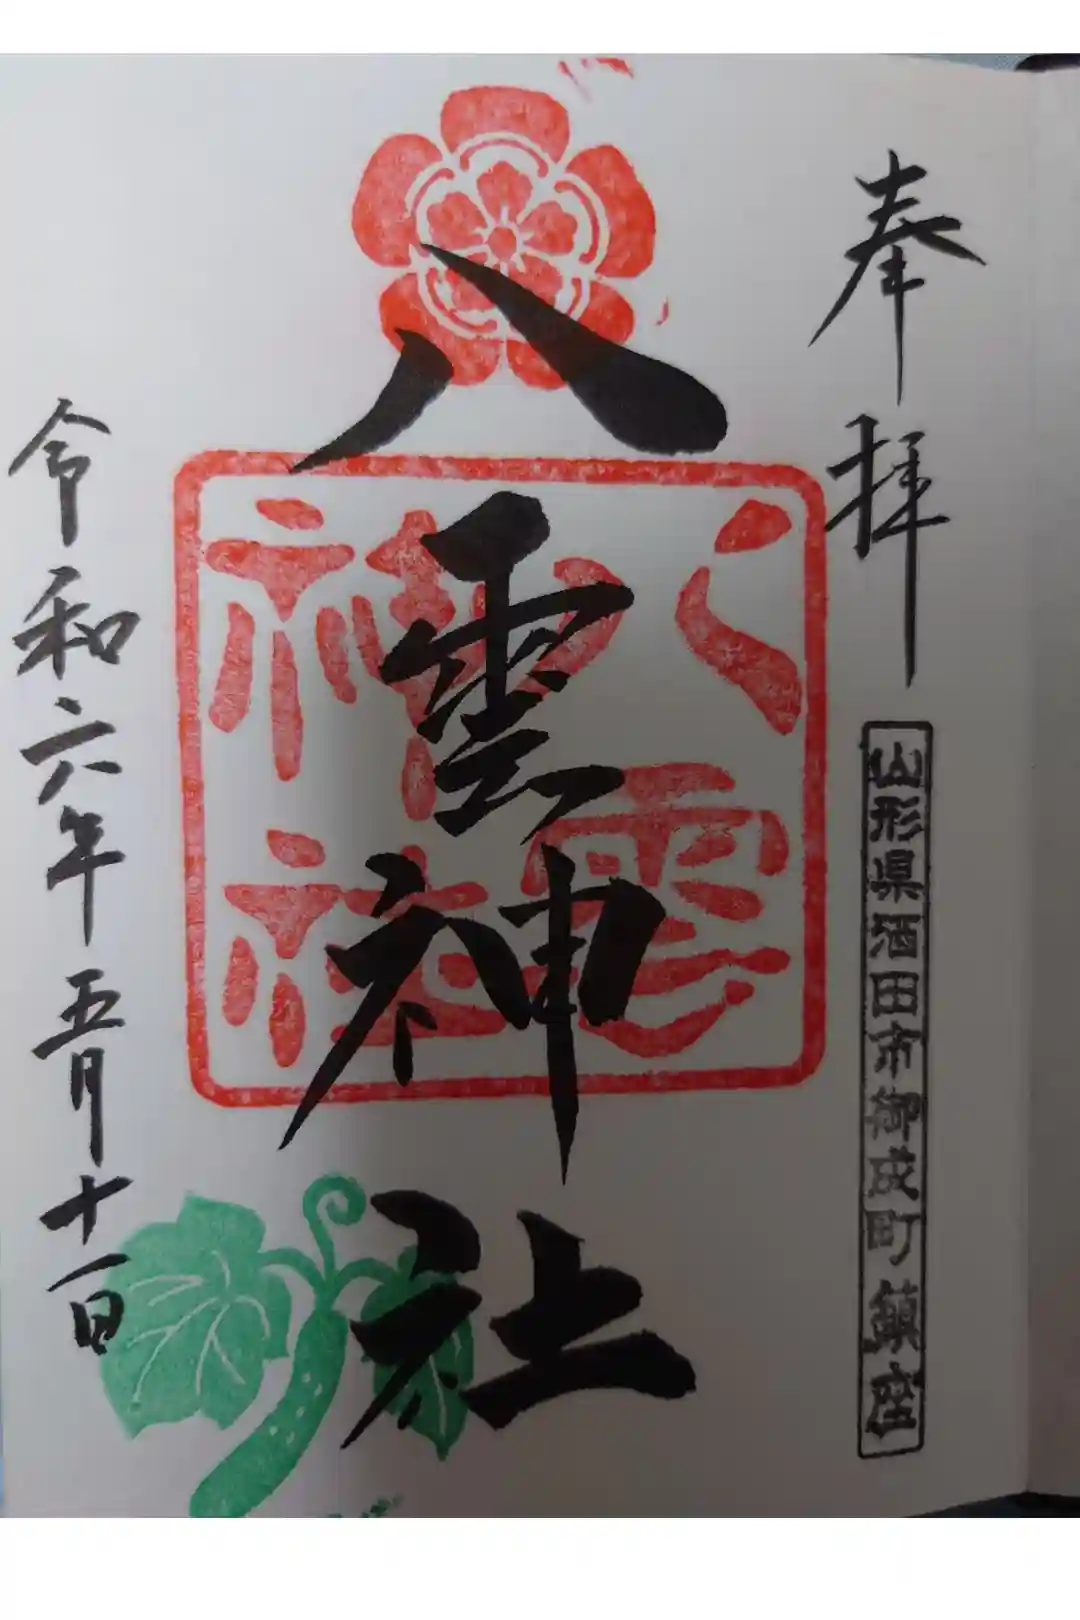 奉拝
山形県酒田市御成町鎮座
八雲神社
八雲
神社
令和六年五月十一日